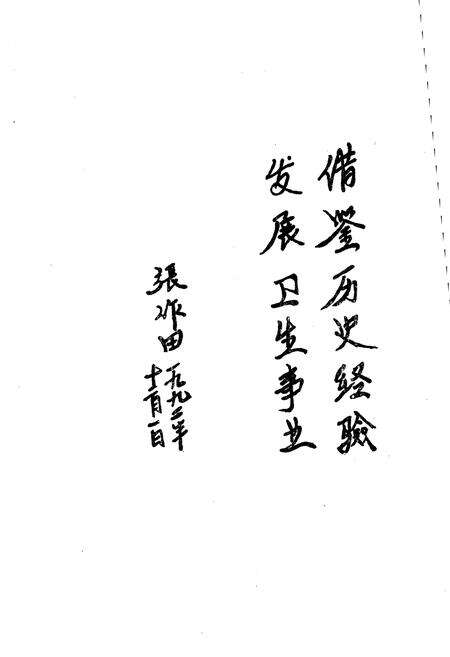 借鉴历史经验
发展卫生事业
張作田
一九九二年
十一月一日